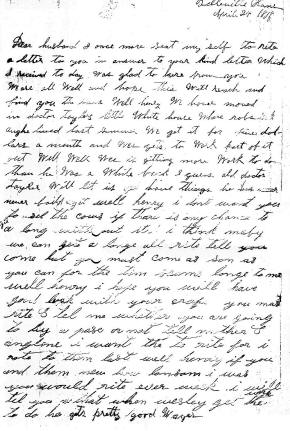 April 24 1898
Dear husband I once more seat my self to rite
a letter to you in answer to your kind letter which
I received to day was glad to here from you
Were all well and hope this will reach and
find you the same Well henry We have moved
in doctor taylors little White house where
last summer We get it for nine dol-
lars a month and Wes gets to Work part of it
out Well Wes is gitting more Work to do
than he Was a While back I guess old doctor
taylor Will let us go
never baby get well henry i dont want you
to sel the cows if there is any chance to
a long without it i think maby
we can get a longe all rite tell you
come but you must come as son as
you can for the tim seems longe to me
well henry i hope you will have
good luck with your crop you must
rite & tell me whether you are going
to buy a place or not tell mother &
i want the to rite for i
rote to them last well henry if you
and them new how lonsom i was
you would rite ever week i will
tel you what when wesley get the work
to do he gets pretty good Wages